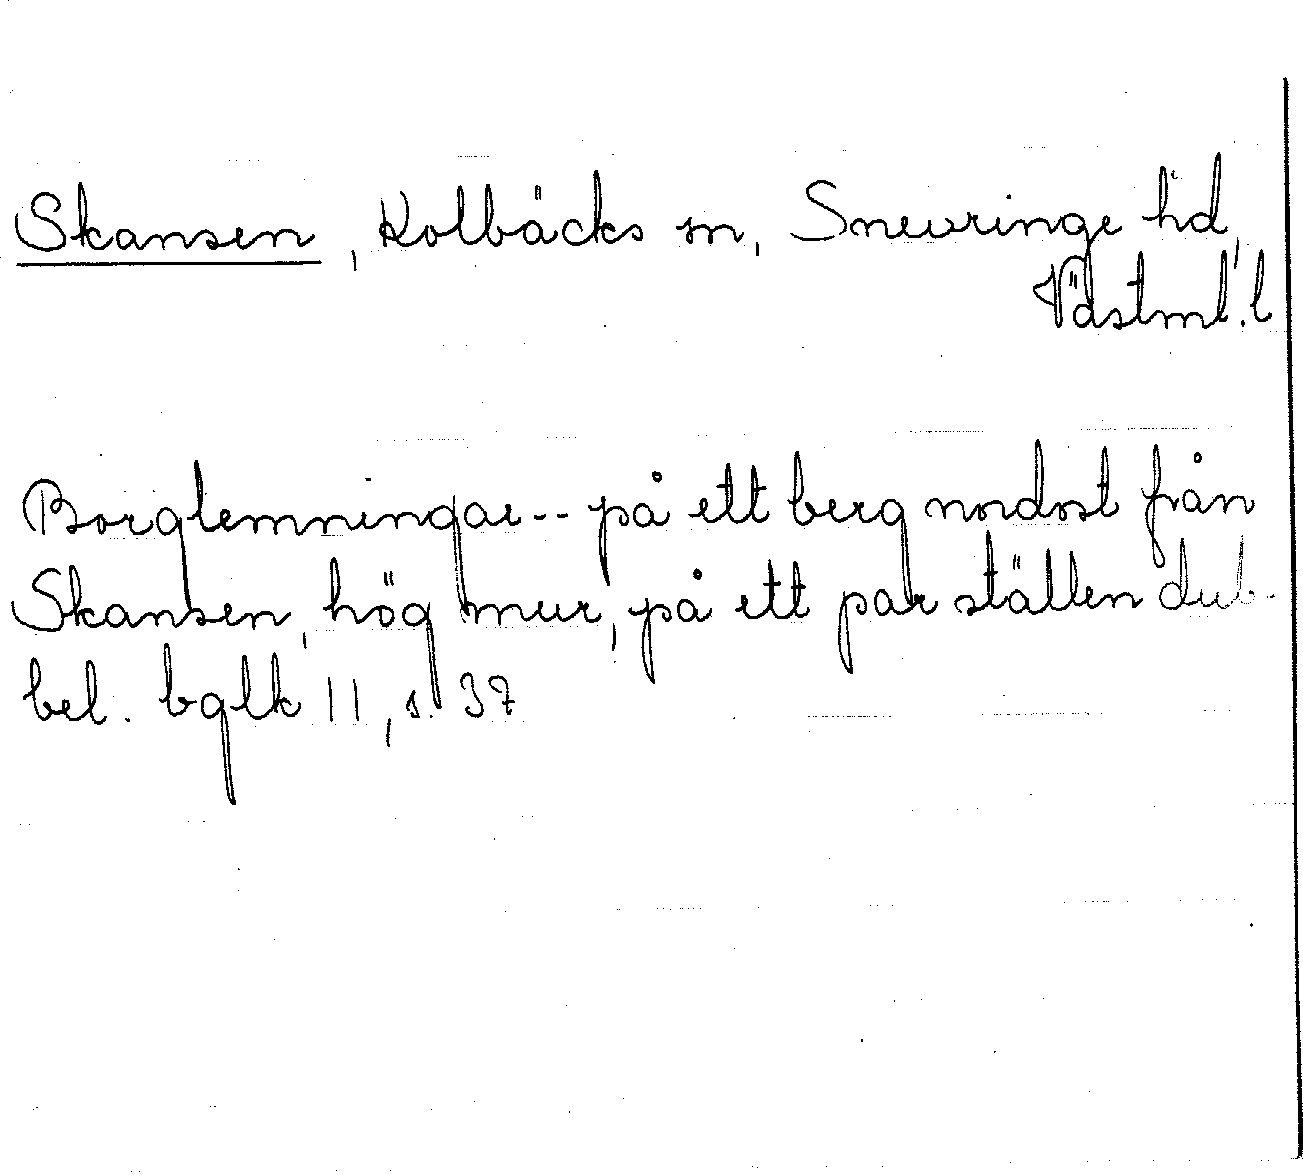 Skansen, Kolbäcks sn, Snevringe hd,
Västml. l
Borglemningar -- på ett berg nordost från
Skansen, hög mur, på ett par ställen dub-
bel. bglk 11, s. 37